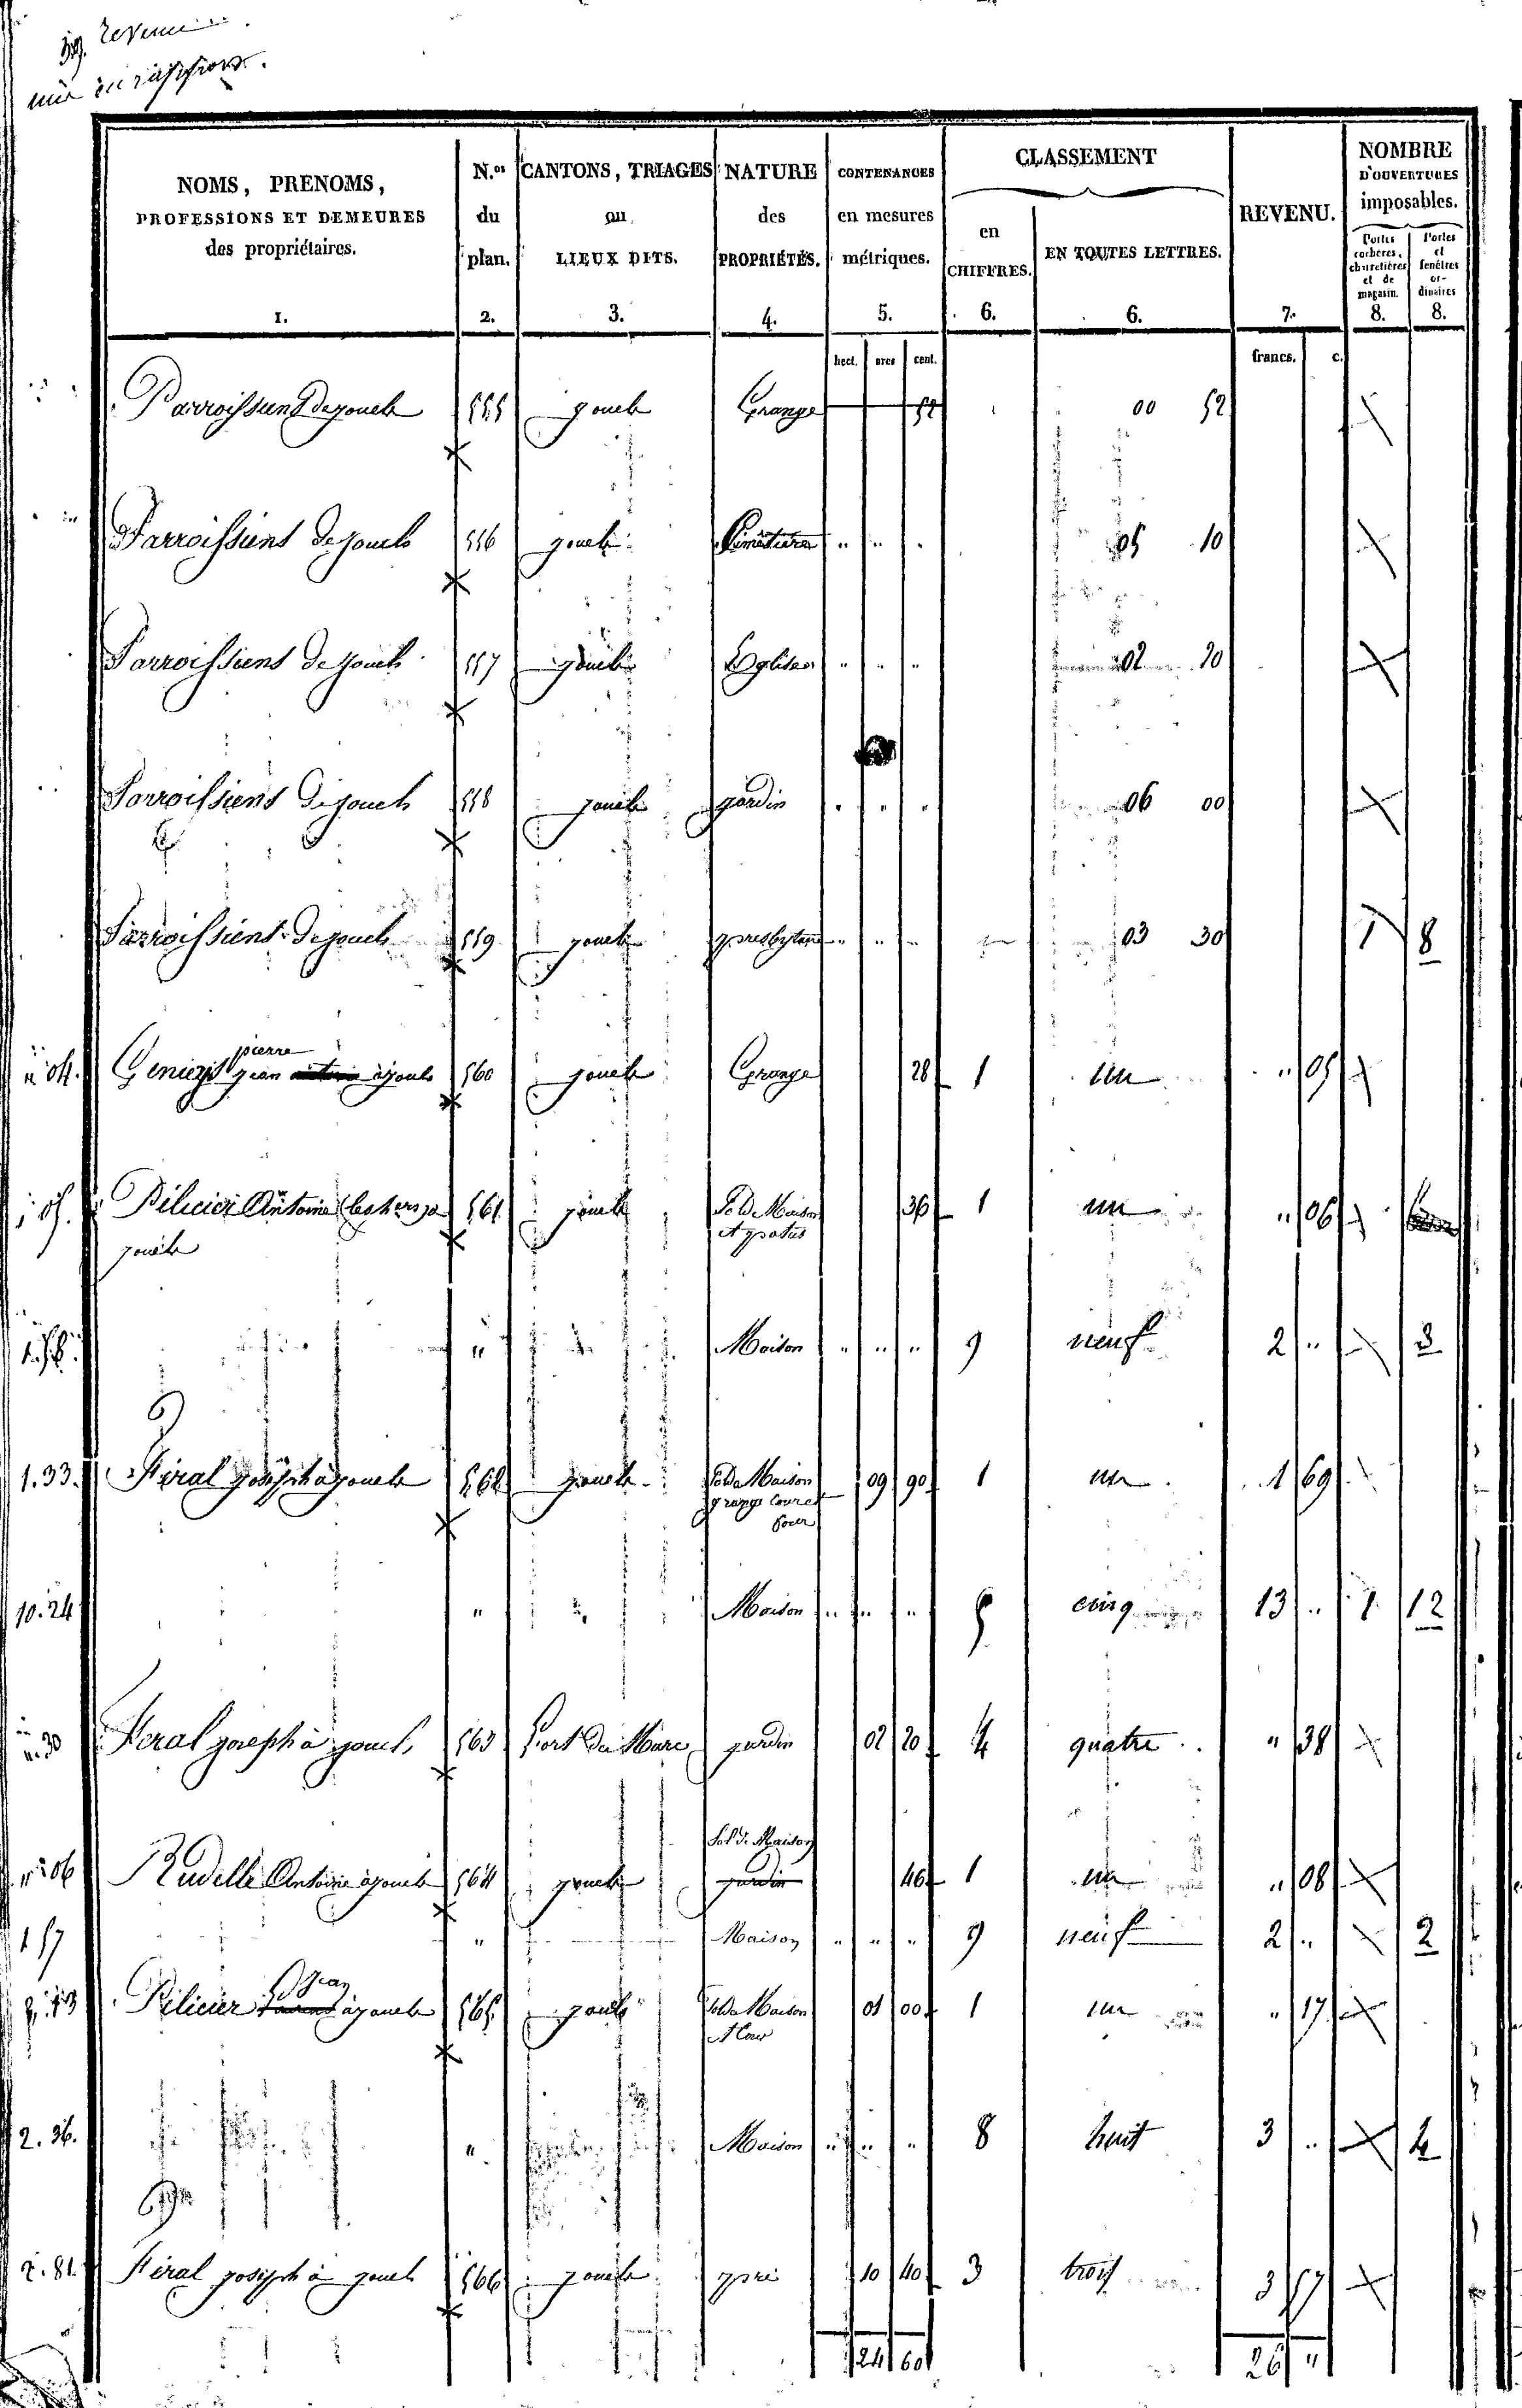 revenu
mis en
NOMS, PRENOMS,
PROFESSIONS ET DEMEURES
des propriétaires.
1.
N.os
du
plan.
2.
CANTONS, TRIAGES
ou
LIEUX DITS.
3.
NATURE
des
PROPRIÉTÉS.
4.
CONTENANCES
en mesures
métriques.
5.
CLASSEMENT
en
CHIFFRES.
6.
EN TOUTES LETTRES.
6.
REVENU.
7.
NOMBRE
D'OUVERTURES
imposables.
Portes
cochères,
charretières
et de
magasin.
8.
Portes
et
fenêtres
or-
dinaires
8.
hect. ares cent. francs. c.
Parroissiens de jouels 555 jouels Grange 52 00 52
Parroissiens de jouels 556 jouels Cimetière " " " 05 10
Parroissiens de jouels 557 jouels Eglise " " " 02 20
Parroissiens de jouels 558 jouels jardin " " " 06 00
Parroissiens de jouels 559 jouels presbytere " " " 03 30 1 8
pierre
" 04. Geniez jean à jouels 560 jouels Grange 28 1 un " 05
05. Pélicier Antoine 561 jouels Sol de Maison 36 1 un " 06
jouels et patus
" Maison " " " 9 neuf 2 " 3
1.33. Féral joseph à jouels 562 jouels Sol de Maison 09 90 1 un 1 69
grange cour et
four
10.24 " " Maison " " " 5 cinq 13 " 1 12
".30 Féral joseph à jouels 563 jardin 02 20 4 quatre " 38
Sol de Maison
" 06 Rudelle Antoine à jouels 564 jouels jardin 46 1 un " 08
1 57 " Maison " " " 9 neuf 2 " 2
Jean
13 Pélicier à jouels 565 jouels Sol de Maison 01 00 1 un " 17
et Cour
2.36. " Maison " " " 8 huit 3 " 4
2.81. Féral joseph à jouels 566 jouels pré 10 40 3 trois 3 57
24 60 26 "